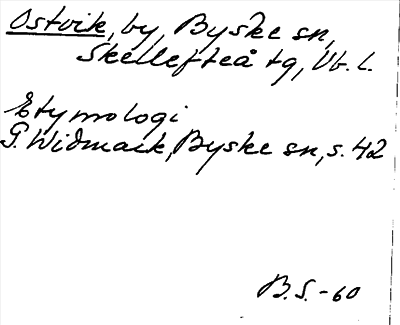 Ostvik, by, Byske sn,
Skellefteå tg, Vb. l.
Etymologi
G. Widmark, Byske sn, s. 42
B.S. -60